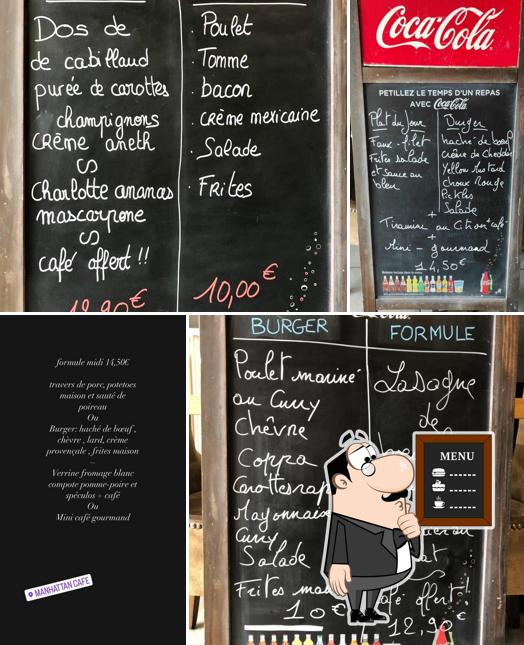 Dos de
de cabillaud
purée de carottes
champignons
CRème aneth
Charlotte ananas
mascarpone
café offert !!
12,90€
. Poulet
. Tomme
. bacon
. crème mexicaine
. Salade
. Frites
10,00€
Coca-Cola
PETILLEZ LE TEMPS D'UN REPAS
AVEC Coca-Cola
Plat du Jour
Faux-filet
Frites salade
et sauce au
bleu
Burger
haché de bœuf
crème de Cheddar
Yellow Mustard
choux Rouge
Pickles
Salade
+
Tiramisu au Citron + café
+
Mini - gourmand
14,50€
formule midi 14,50€
travers de porc, potetoes
maison et sauté de
poireau
Ou
Burger: haché de bœuf ,
chèvre , lard, crème
provençale , frites maison
~
Verrine fromage blanc
compote pomme-poire et
spéculos + café
Ou
Mini café gourmand
MANHATTAN CAFE
BURGER
Poulet mariné
au Curry
Chêvre
Coppa
Carottes rap
Mayonnaise
Curry
Salade
Frites mai
10€
FORMULE
Lasagne
de
café offert!
12,90€
MENU